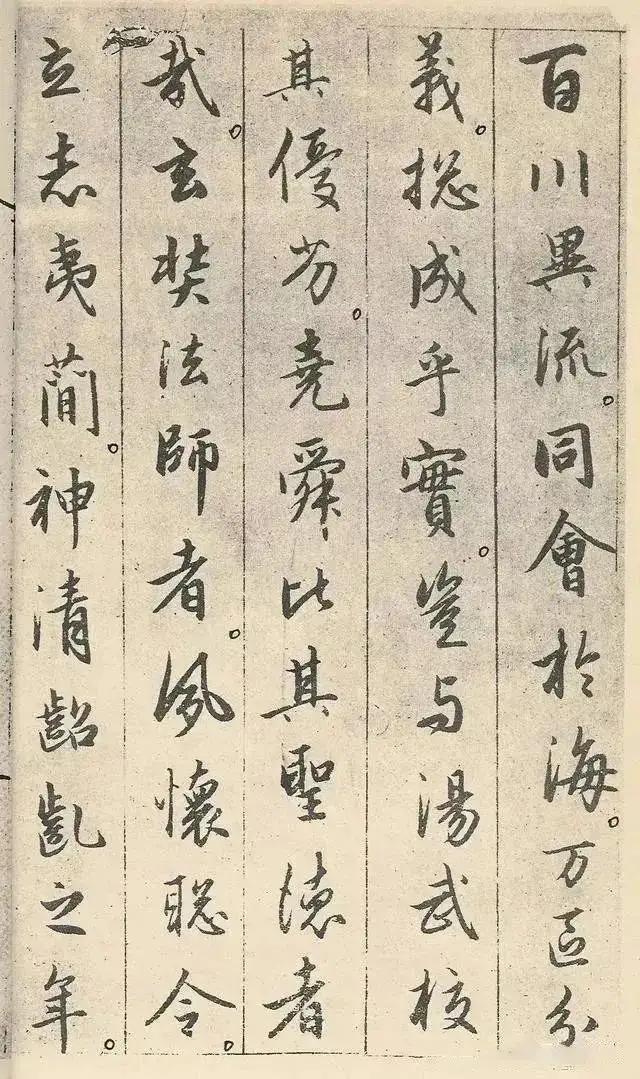 百川異流。同會於海。万區分
義。揔成乎實。豈与湯武校
其優劣。堯舜比其聖徳者
哉。玄奘法師者。夙懷聡令。
立志夷蕳。神清齠齓之年。